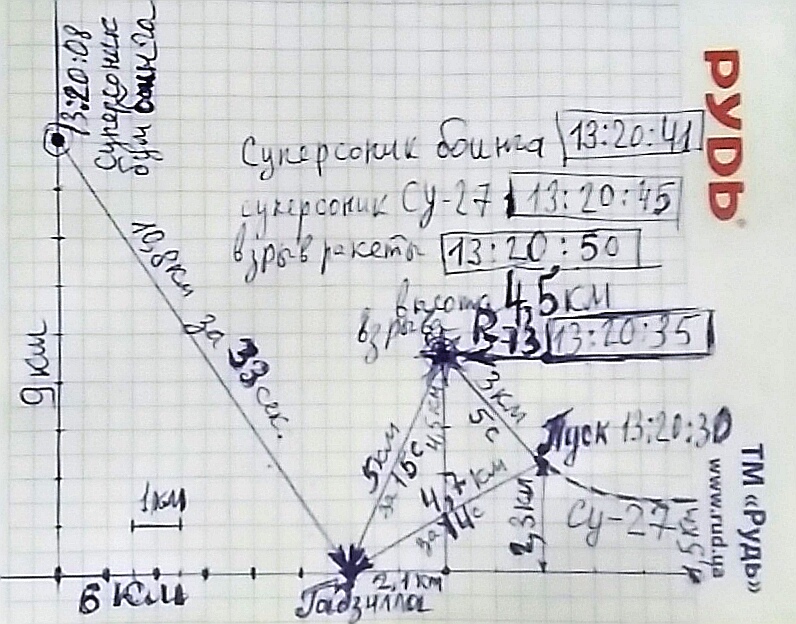 13:20:08
Суперсоник
бум боинга
Суперсоник боинга 13:20:41
суперсоник Су-27 13:20:45
взрыв ракеты 13:20:50
высота 4,5 км
взрыва R-73 13:20:35
за 33 сек.
9 км
3 км
5с
5 км
за 15с
4,5 км
4,7 км
за 14с
Пуск 13:20:30
Су-27
2,3 км
1 км
6 км
2,1 км
Гадзилла
РУДЬ
ТМ «Рудь»
www.rud.ua